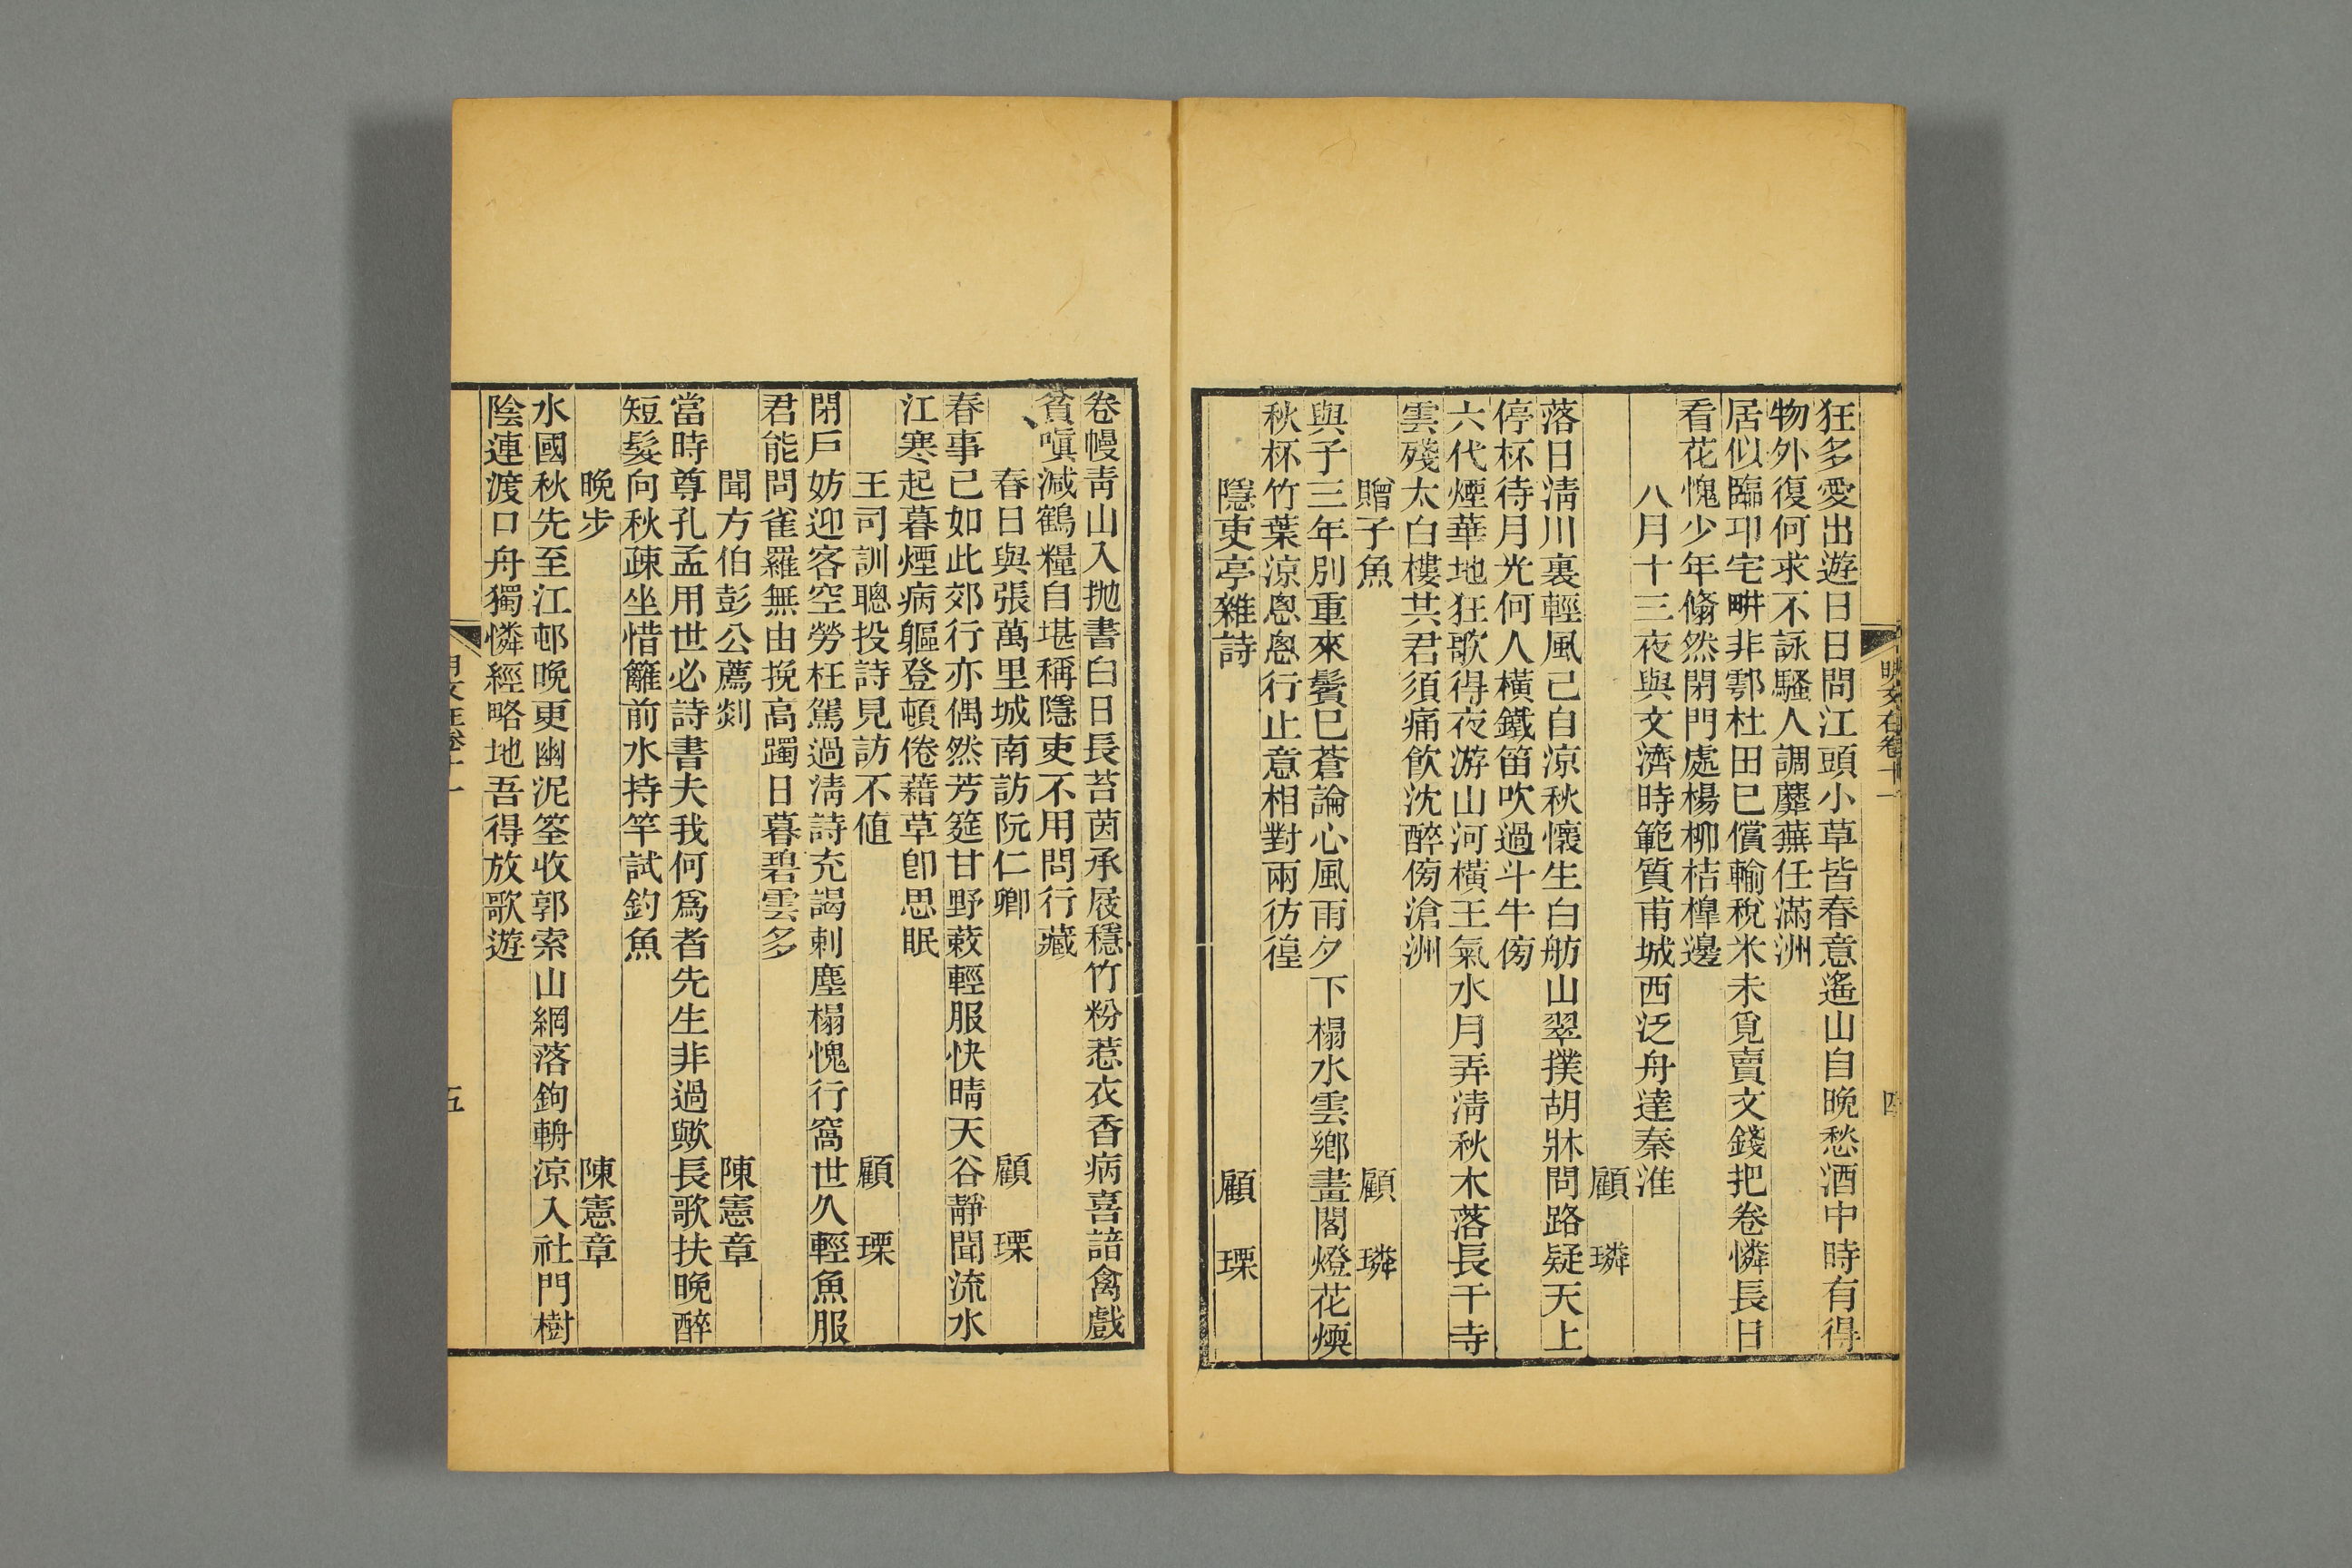 狂多愛出遊日日問江頭小草皆春意遙山自晩愁酒中時有得
物外復何求不詠騷人調蘼蕪任滿洲
居似臨卭宅畊非鄠杜田巳償輸稅米未覓賣文錢把卷憐長日
看花愧少年翛然閉門處楊柳桔槹邊
八月十三夜與文濟時範質甫城西泛舟達秦淮
顧璘
落日淸川裏輕風已自涼秋懷生白舫山翠撲胡牀問路疑天上
停杯待月光何人橫鐵笛吹過斗牛傍
六代煙華地狂歌得夜游山河橫王氣水月弄淸秋木落長干寺
雲殘太白樓共君須痛飮沈醉傍滄洲
贈子魚 顧璘
與子三年別重來鬢巳蒼論心風雨夕下榻水雲鄉畫閣燈花煥
秋杯竹葉涼悤悤行止意相對兩彷徨
隱吏亭雜詩 顧瑮
卷幔靑山入拋書白日長苔茵承屐穩竹粉惹衣香病喜諳禽戲
貧嗔減鶴糧自堪稱隱吏不用問行藏
春日與張萬里城南訪阮仁卿 顧瑮
春事已如此郊行亦偶然芳筵甘野蔌輕服快晴天谷靜聞流水
江寒起暮煙病軀登頓倦藉草卽思眠
王司訓聰投詩見訪不値 顧瑮
閉戶妨迎客空勞枉駕過淸詩充謁刺塵榻愧行窩世久輕魚服
君能問雀羅無由挽高躅日暮碧雲多
聞方伯彭公薦剡 陳憲章
當時尊孔孟用世必詩書夫我何爲者先生非過歟長歌扶晩醉
短髮向秋疎坐惜籬前水持竿試釣魚
晩步 陳憲章
水國秋先至江邨晩更幽泥筌收郭索山網落鉤輈涼入社門樹
陰連渡口舟獨憐經略地吾得放歌遊
明文在卷十一
四
五